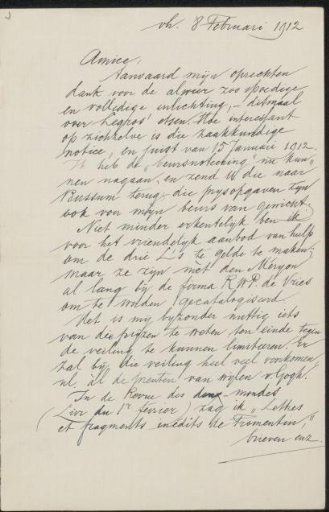 vh. 8 Februari 1912
Amice,
Aanvaard mijn oprechten
dank voor de alweer zoo spoedige
en volledige inlichting, - ditmaal
over Legros' etsen. Hoe interessant
op zichzelve is die zaakkundige
notice, en juist van 15 Januari 1912.
Ik heb de "beursnoteering" nu kun-
nen nagaan, en zend U die naar
Bussum terug; die prijsopgaven zijn
ook voor mijn beurs van gewicht.
Niet minder erkentelijk ben ik
voor het vriendelijk aanbod van hulp
om de drie L's te gelde te maken;
maar ze zijn mèt den Méryon
al lang bij de firma R.W.P. de Vries
om te worden gecatalogiseerd.
Het is mij bijzonder nuttig iets
van die prijzen te weten ten einde tegen
de veiling te kunnen limiteeren. Er
zal bij die veiling heel veel voorkomen,
nl. àl de prenten van wijlen v. Gogh.
In de Revue des deux mondes
(Livr du 1er février) zag ik "Lettres
et fragments inédits de Fromentin,"
brieven enz.